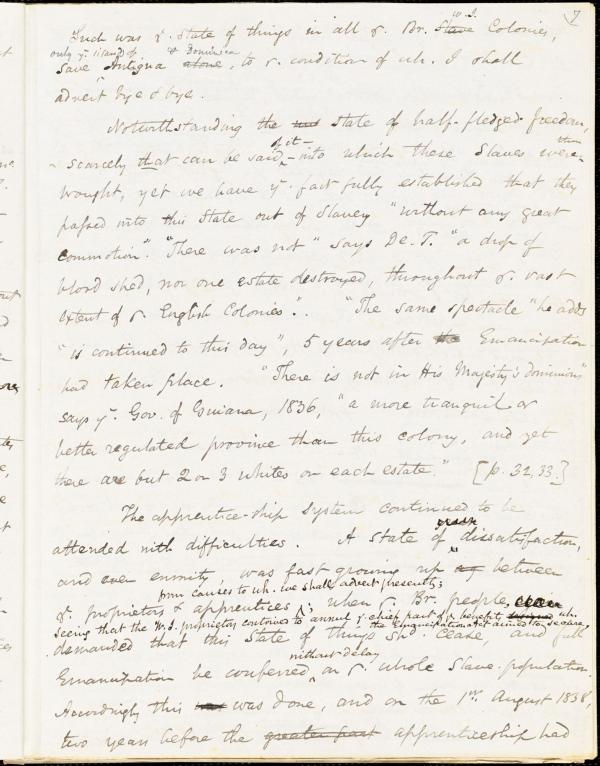 7
W. I.
Such was ye. state of things in all ye. Br. Slave Colonies,
only ye. island of & Dominica
save Antigua alone, to ye. condition of wh. I shall
advert bye & bye.
Notwithstanding the state of half-fledged freedom,
of it – then
– scarcely that can be said, – into which these Slaves were
brought, yet we have ye. fact fully established that they
passed into this State out of Slavery "without any great
commotion". "There was not" says De. T. "a drop of
blood shed, nor one estate destroyed, throughout ye. vast
extent of ye. English Colonies". "The same spectacle" he adds
"is continued to this day", 5 years after the Emancipation
had taken place. "There is not in His Majesty's dominions"
says ye. Gov. of Guiana, 1836, "a more tranquil or
better regulated province than this colony, and yet
there are but 2 or 3 whites on each estate." [p. 32, 33.]
The apprentice-ship system continued to be
attended with difficulties. A state of dissatisfaction,
and even enmity, was fast growing up between
from causes to wh. we shall advert presently;
ye. proprietors & apprentices; when ye. Br. people,
seeing that the W. I. proprietors contrives to annul ye. chief part of ye. benefit wh. the Emancipation Act aimed to secure,
demanded that this state of things shd. cease, and full
without delay
Emancipation be conferred on ye. whole slave-population.
Accordingly this was done, and on the 1st. August 1838,
two years before the greater part apprenticeship had